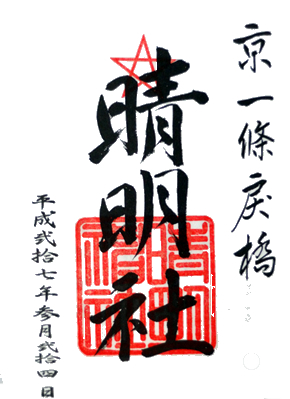 京一條戻橋
晴明社
平成弐拾七年参月弐拾四日